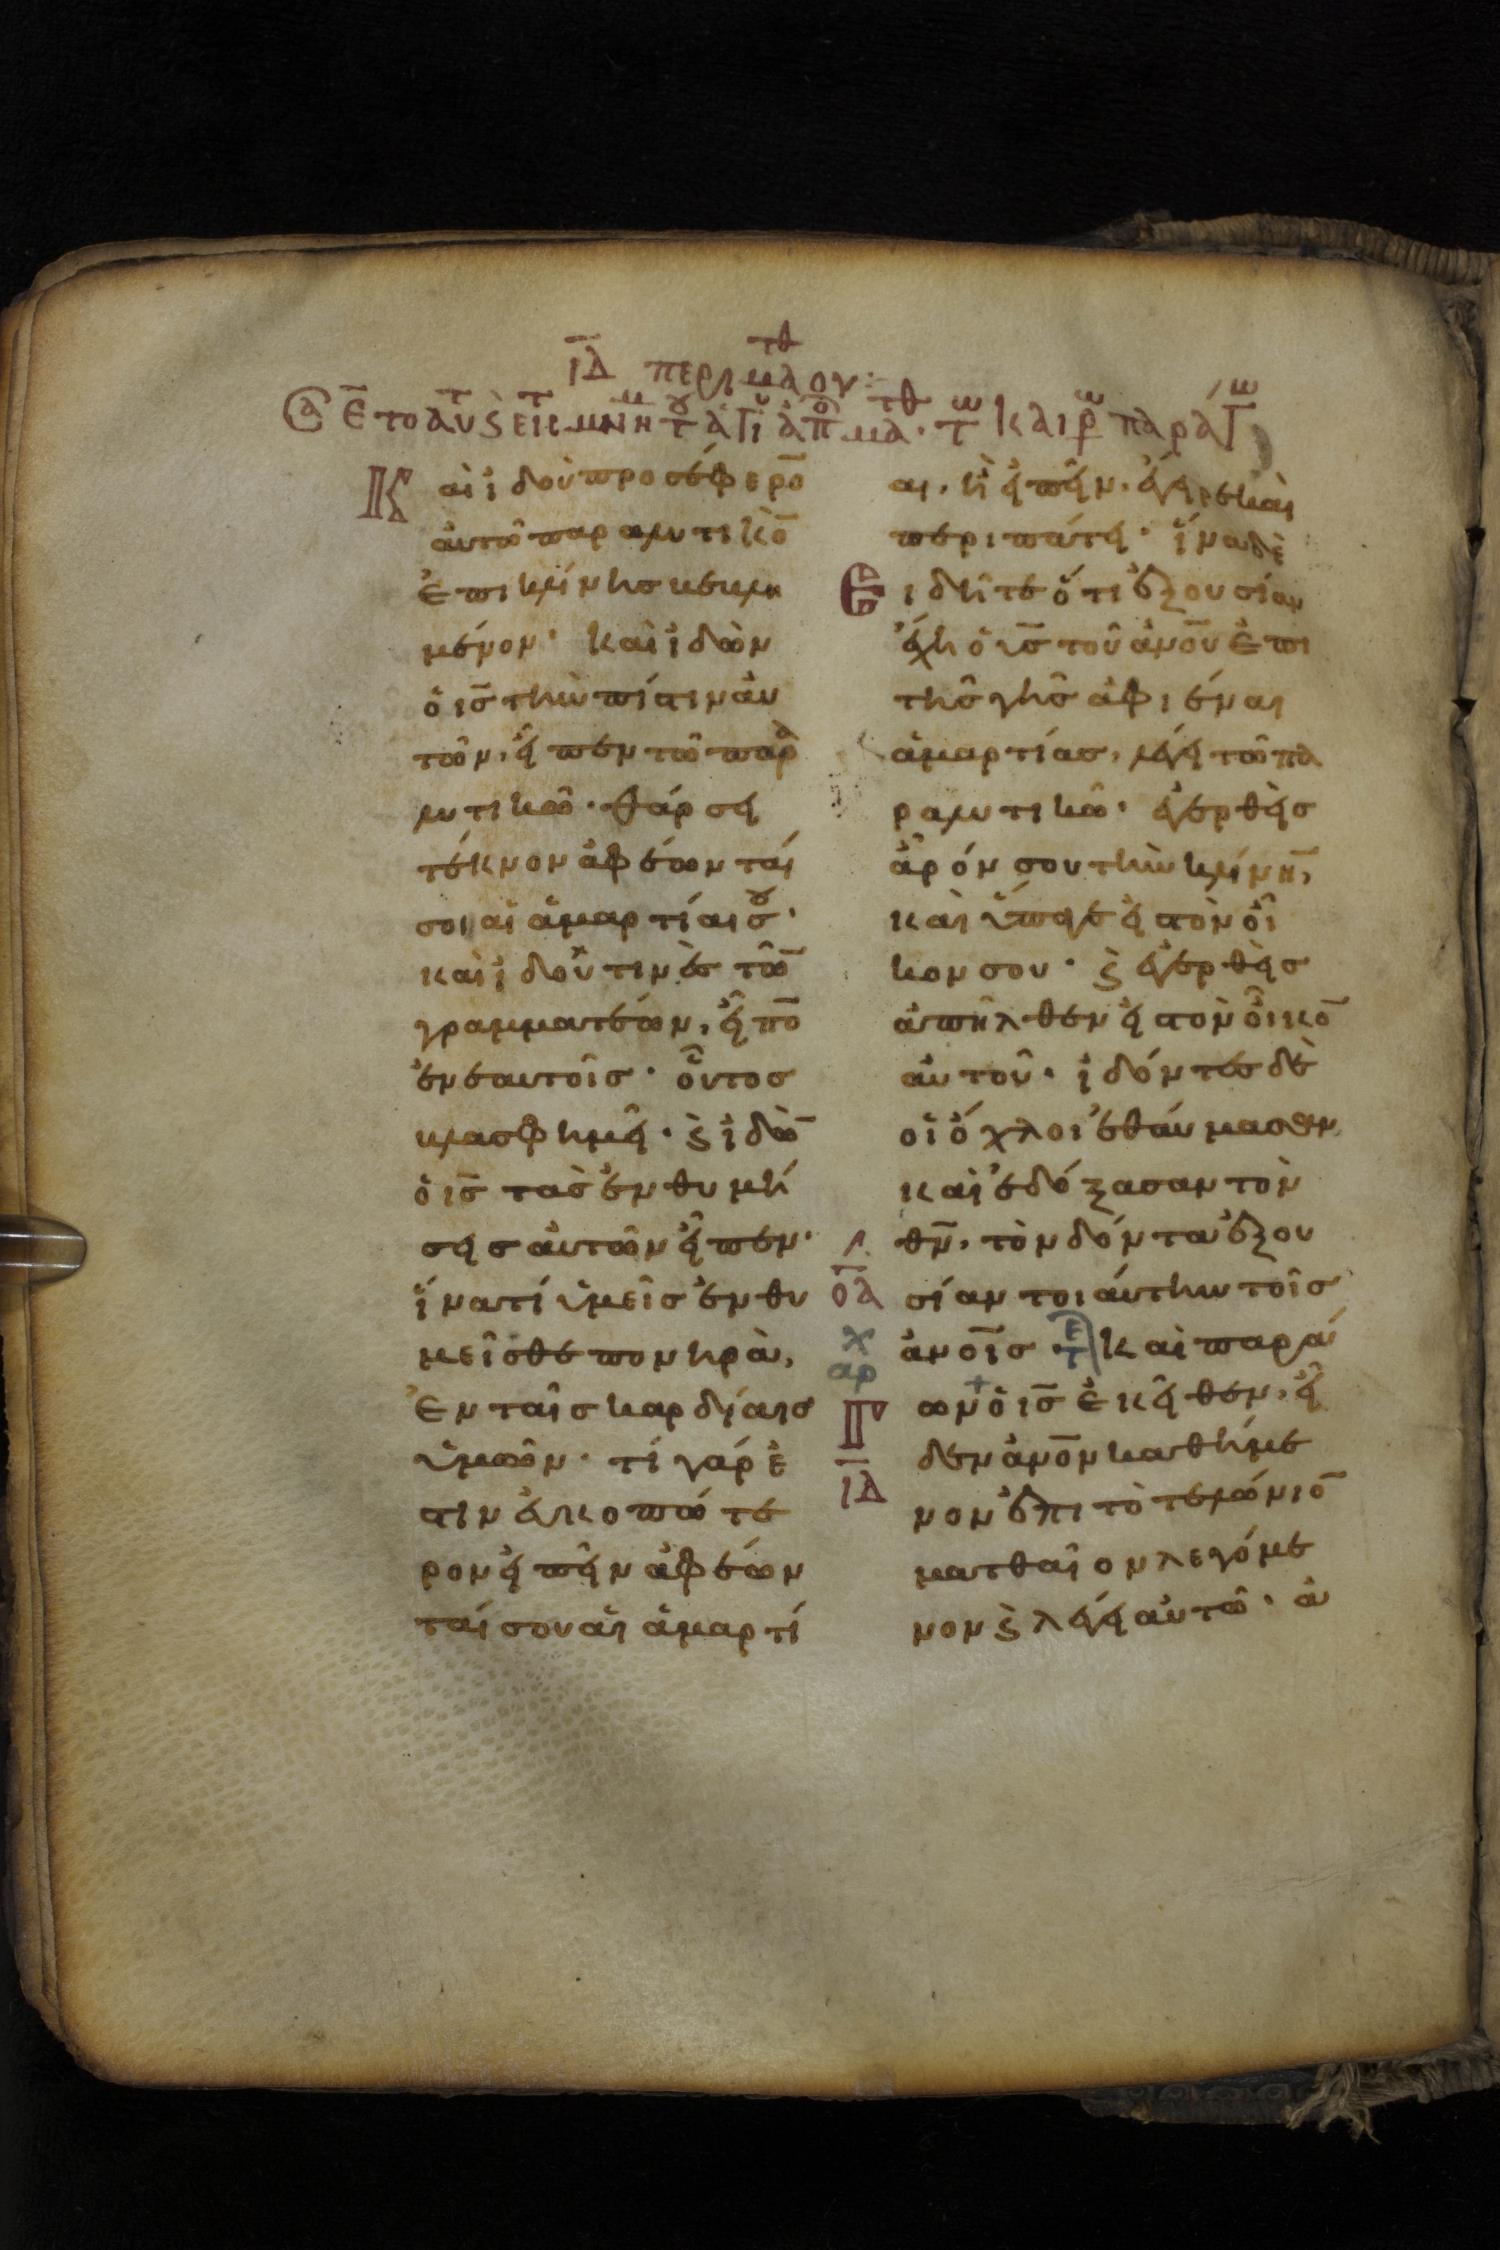 ι̅δ̅ περὶ μα̅τθ̅ου:
Καὶ ἰδοὺ προσέφερο̅
αὐτῶ παραλυτικὸ̅
ἐπὶ κλίνησ βεβλη
μένον· καὶ ἰδὼν
ὁ ι̅σ̅ τὴν πίστιν αὐ
τῶν, εἶπεν τῶ παρα
λυτικῶ· θάρσει
τέκνον ἀφέωνταί
σοι αἱ ἁμαρτίαι σου·
καὶ ἰδού τινὲσ τῶ̅
γραμματέων, εἶπο̅
ἐν ἑαυτοῖσ· οὗτοσ
βλασφημεῖ· ϗ̀ ἰδὼ̅
ὁ ι̅σ̅ τὰσ ἐνθυμή
σεισ αὐτῶν εἶπεν·
ἵνατί ὑμεῖσ ἐνθυ
μεῖσθε πονηρὰ,
ἐν ταῖσ καρδίαισ
ὑμῶν· τί γάρ ἐ
στιν εὐκοπώτε
ρον εἰπεῖν ἀφέων
ταί σου αἱ ἁμαρτί
αι, ἢ εἰπεῖν, ἔγειρε καὶ
περιπάτει· ἵνα δὲ
Εἰδῆτε ὅτι ἐξουσίαν
ἔχει ὁ υ̅σ̅ τοῦ ἀν̅ου̅ ἐπὶ
τῆσ γῆσ ἀφιέναι
ἁμαρτίασ, λέγει τῶ πα
ραλυτικῶ· ἐγερθεὶσ
ἆρόν σου τὴν κλίνη̅,
καὶ ὕπαγε εἰσ τὸν οἶ
κον σου· ϗ̀ ἐγερθεὶσ
ἀπῆλθεν εἰσ τὸν οἶκο̅
αὐτοῦ· ἰδόντεσ δὲ
οἱ ὄχλοι ἐθαύμασαν
καὶ ἐδόξασαν τὸν
θ̅ν̅, τὸν δόντα ἐξου
ο̅α̅ σίαν τοιαύτην τοῖσ
χ ἀν̅οι̅σ· τε καὶ παρά
αρ
Γ γων ὁ ι̅σ̅ ἐκεῖθεν, εἶ
δεν ἄν̅ον̅ καθήμε
ι̅δ̅ νον ἐπὶ τὸ τελώνιο̅
ματθαῖον λεγόμε
νον ϗ̀ λέγει αὐτῶ· ἀ